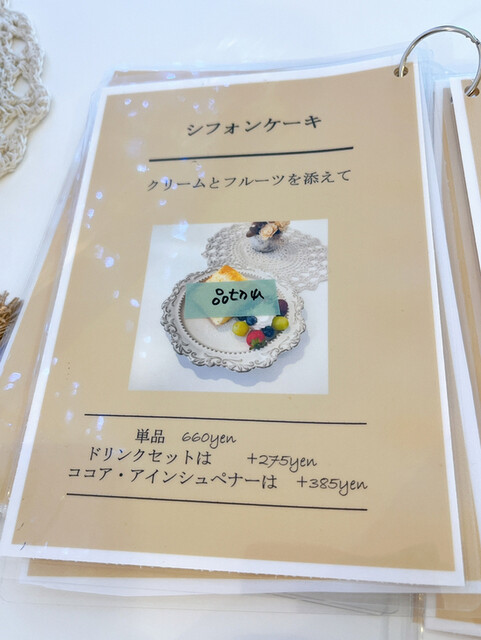 シフォンケーキ
クリームとフルーツを添えて
品切れ
単品 660yen
ドリンクセットは +275yen
ココア・アインシュペナーは +385yen